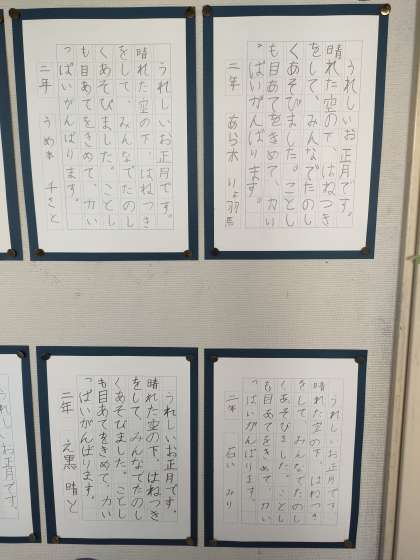 うれしいお正月です。
晴れた空の下、はねつき
をして、みんなでたのし
くあそびました。ことし
も目あてをきめて、力い
っぱいがんばります。
二年 あら木 りょ羽馬
うれしいお正月です。
晴れた空の下、はねつき
をして、みんなでたのし
くあそびました。ことし
も目あてをきめて、力い
っぱいがんばります。
二年 うめ木 千さと
うれしいお正月です。
晴れた空の下、はねつき
をして、みんなでたのし
くあそびました。ことし
も目あてをきめて、力い
っぱいがんばります。
二年 石い みり
うれしいお正月です。
晴れた空の下、はねつき
をして、みんなでたのし
くあそびました。ことし
も目あてをきめて、力い
っぱいがんばります。
二年 え黒 晴と
うれしいお正月です。